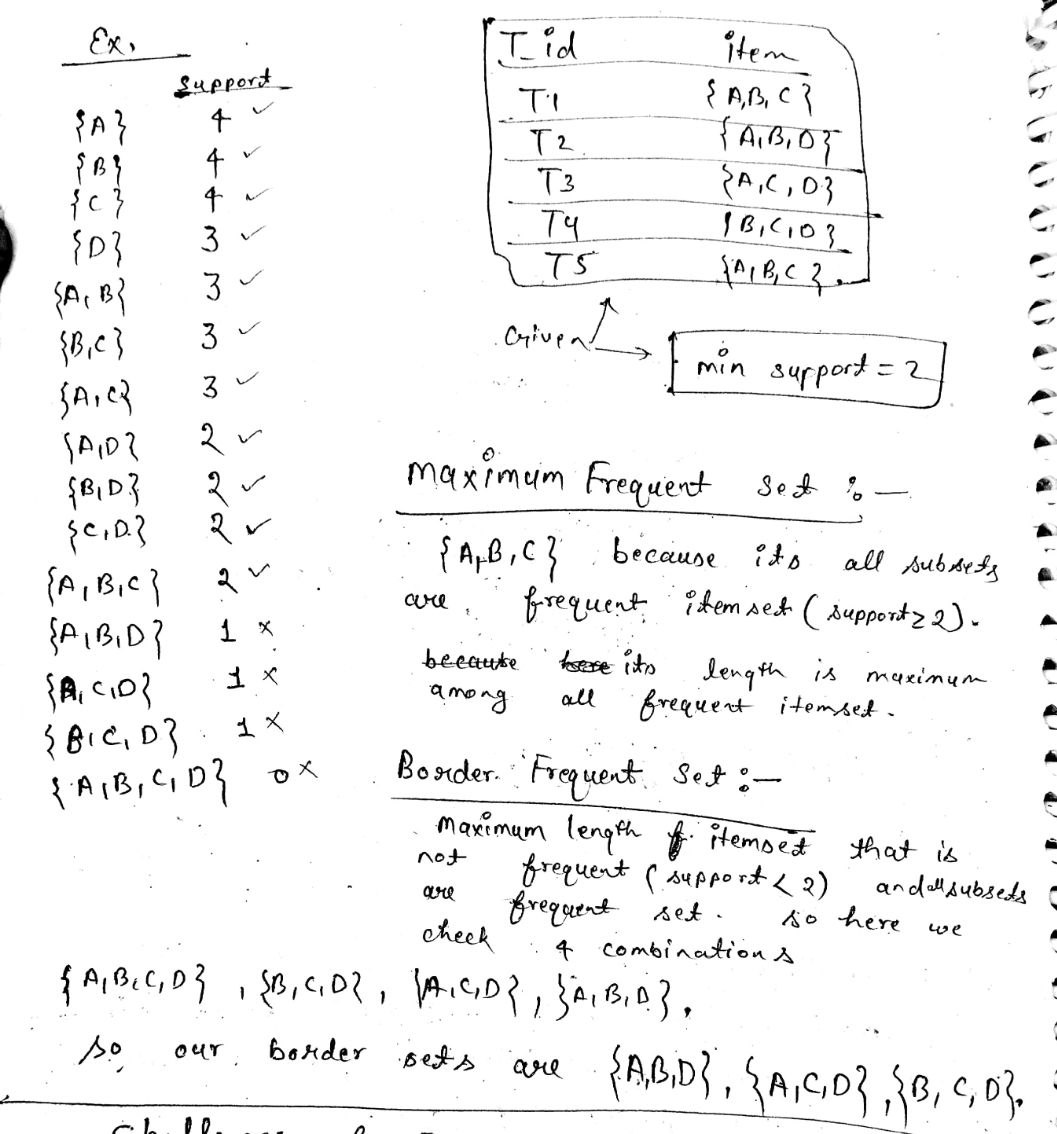 Ex.
support
{A} 4 ✓
{B} 4 ✓
{C} 4 ✓
{D} 3 ✓
{A, B} 3 ✓
{B,C} 3 ✓
{A,C} 3 ✓
{A,D} 2 ✓
{B,D} 2 ✓
{C,D} 2 ✓
{A,B,C} 2 ✓
{A,B,D} 1 ×
{A,C,D} 1 ×
{B,C,D} 1 ×
{A,B,C,D} 0 ×
T_id item
T1 {A,B,C}
T2 {A,B,D}
T3 {A,C,D}
T4 {B,C,D}
T5 {A,B,C}.
Given
min support = 2
Maximum Frequent Set :—
{A,B,C} because its all subsets
are frequent itemset (support≥2).
because here its length is maximum
among all frequent itemset.
Boarder Frequent Set :—
Maximum length of itemset that is
not frequent (support < 2) and all subsets
are frequent set. so here we
check 4 combinations
{A,B,C,D}, {B,C,D}, {A,C,D}, {A,B,D}.
so our boarder sets are {A,B,D}, {A,C,D}, {B,C,D}.